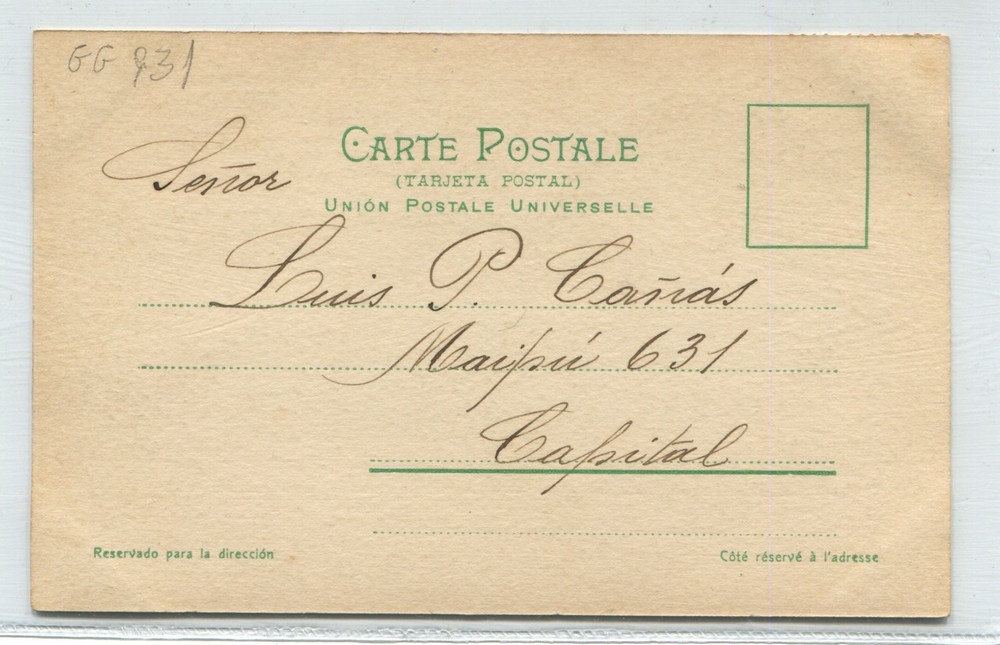 GG 931
CARTE POSTALE
Señor
(TARJETA POSTAL)
UNIÓN POSTALE UNIVERSELLE
Luis P. Cañás
Maipú 631
Capital
Reservado para la dirección
Côté réservé à l'adresse